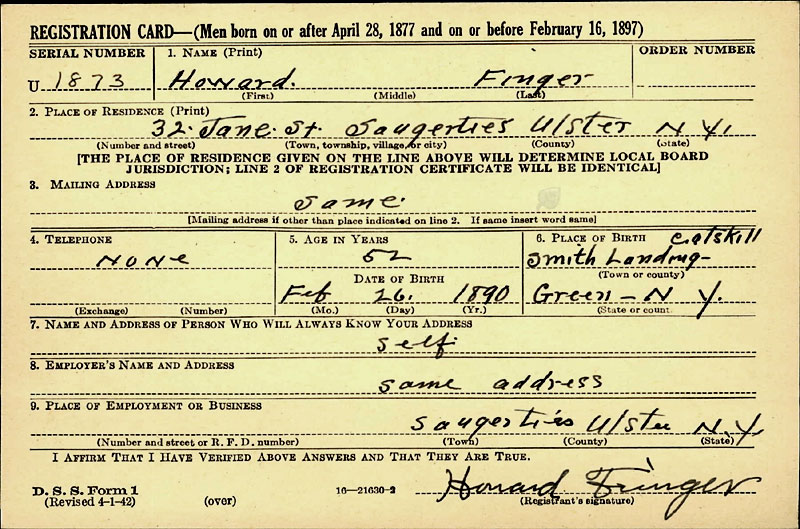 REGISTRATION CARD—(Men born on or after April 28, 1877 and on or before February 16, 1897)
SERIAL NUMBER 1. NAME (Print) ORDER NUMBER
U 1873 Howard. Finger
(First) (Middle) (Last)
2. PLACE OF RESIDENCE (Print)
32. Jane. St. Saugerties Ulster N Y.
(Number and street) (Town, township, village, or city) (County) (State)
[THE PLACE OF RESIDENCE GIVEN ON THE LINE ABOVE WILL DETERMINE LOCAL BOARD
JURISDICTION; LINE 2 OF REGISTRATION CERTIFICATE WILL BE IDENTICAL]
3. MAILING ADDRESS
Same.
[Mailing address if other than place indicated on line 2. If same insert word same]
4. TELEPHONE 5. AGE IN YEARS 6. PLACE OF BIRTH Catskill
None 52 Smith Landing-
DATE OF BIRTH (Town or county)
Feb 26. 1890 Green - N Y.
(Exchange) (Number) (Mo.) (Day) (Yr.) (State or count
7. NAME AND ADDRESS OF PERSON WHO WILL ALWAYS KNOW YOUR ADDRESS
self.
8. EMPLOYER'S NAME AND ADDRESS
same address
9. PLACE OF EMPLOYMENT OR BUSINESS
Saugerties Ulster N.Y.
(Number and street or R. F. D. number) (Town) (County) (State)
I AFFIRM THAT I HAVE VERIFIED ABOVE ANSWERS AND THAT THEY ARE TRUE.
D. S. S. Form 1 16—21630-2 Howard Finger
(Revised 4-1-42) (over) (Registrant's signature)